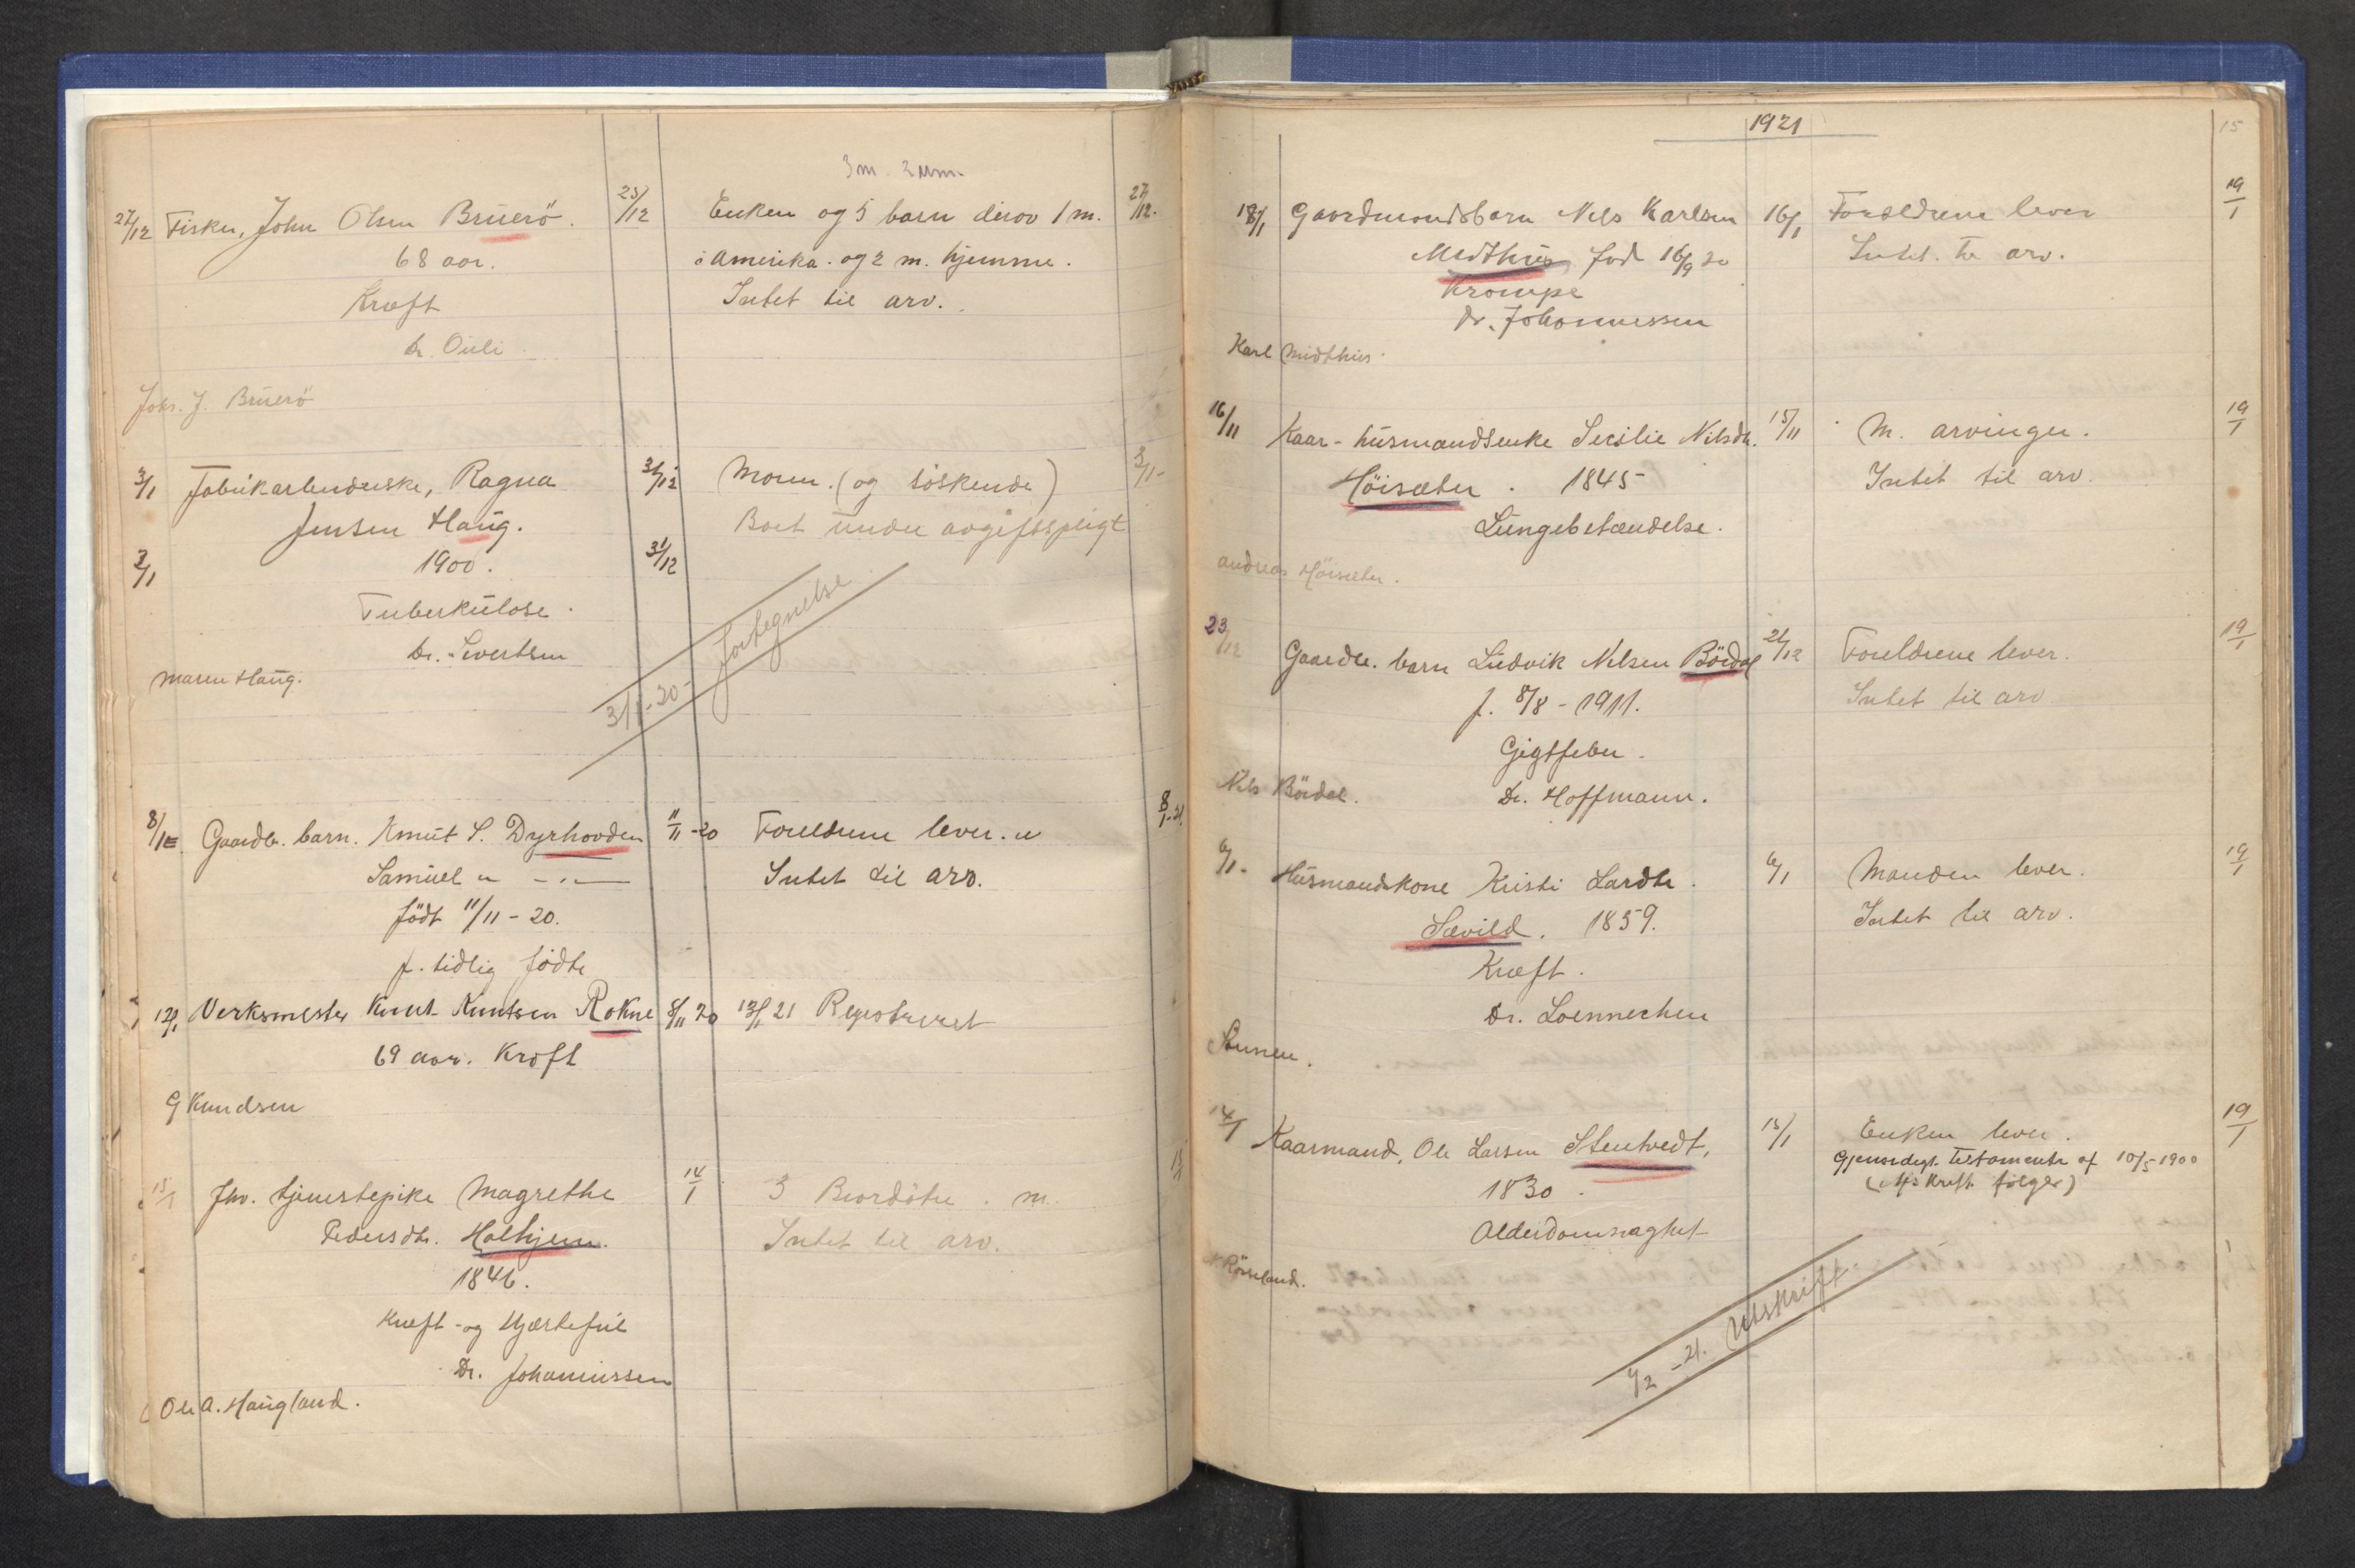 3 m. 2 um.
27/12 Fisker, John Olsen Bruerö. 23/12 Enken og 5 barn derav 1 m. 27/12.
68 aar. i Amerika. og 2 m. hjemme.
Kræft Intet til arv.
Dr. Ouli
Johs. J. Bruerö
3/1 Fabrikarbeiderske, Ragna 31/12 Moren. (og söskende) 3/1-
Jensen Haug. Boet under avgiftspligt
3/1 1900. 31/12
Tuberkulose.
Dr. Sivertsen
Maren Haug.
3/1-20- fortegnelse.
8/1 Gaardbr. barn. Knut S. Dyrhovden 11/11-20 Foreldrene lever. 8/1-21
Samuel " - " - Intet til arv.
födt 11/11-20.
f. tidlig födte
12/1 Verksmester Knut Knutsen Rokne 8/11 20 12/1 21 Registreret
69 aar. Kræft
G Knudsen
15/1 Fhv. tjenestepike Magrethe 14/1 3 Brordötre. m. 15/1
Pedersdtr. Holhjem. Intet til arv.
1846.
Kræft- og Hjertefeil
Dr. Johannessen
Ole A. Haugland.
1921 15
18/1 Gaardmandsbarn Nils Karlsen 16/1 Foreldrene lever 19/1
Midthus fød 16/9 20 Intet til arv.
Krampe
Dr. Johannessen
Karl Midthus.
16/11 Kaar-husmandsenke Sesilie Nilsdtr. 15/11 M. arvinger. 19/1
Höisæter. 1845 Intet til arv.
Lungebetændelse.
Andreas Höisæter.
23/12 Gaardbr. barn Ludvik Nilsen Bördal 21/12 Foreldrene lever. 19/1
f. 8/8-1911. Intet til arv
Gigtfeber.
Nils Bördal. Dr. Hoffmann.
6/1- Husmandskone Kristi Larsdtr. 6/1 Manden lever. 19/1
Sævild. 1859. Intet til arv.
Kræft.
Dr. Loennechen
Sunnen.
14/1 Kaarmand, Ole Larsen Stentvedt, 13/1 Enken lever. 19/1
1830. Gjensidigt Testamente af 10/5-1900
(Afskrift følger)
Alderdomsvaghet
N. Røsseland.
4/2-21. Utskrift.